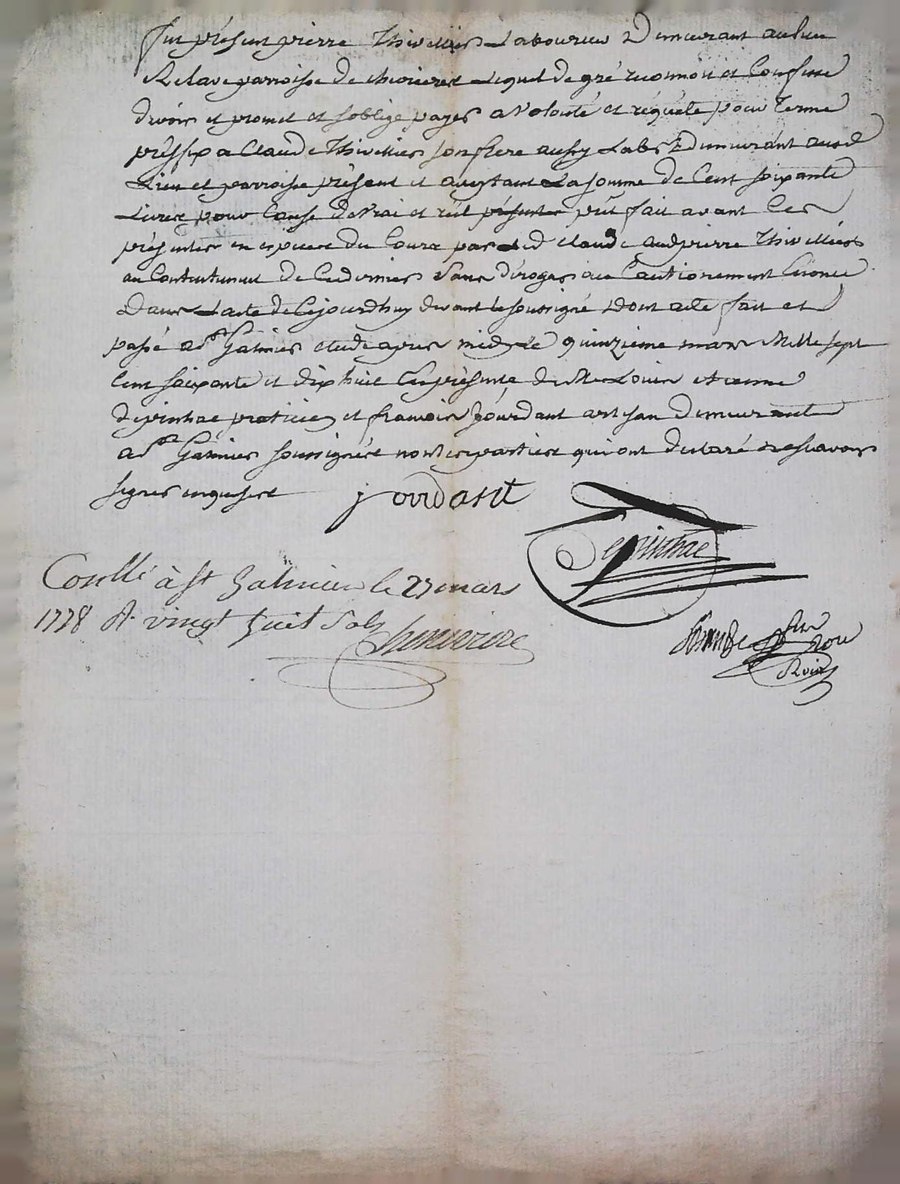 fut présent pierre Thivellier Laboureur Demeurant au lieu
de parroisse de chevrieres Lequel de gré reconnoit et Confesse
devoir et promet et soblige payer a Volonté et requete pour terme
préfix a Claude Thivellier son frere aussy Lab.r Demeurant aud
Lieu et parroisse présent et acceptant La somme de Cent soixante
Livres pour Cause de vrai et réel prét fait avant Ces
présentes en espece du Cours par Led Claude aud pierre Thivellier
au Contentement de Ce dernier Sans déroger au Cautionnement
Dans Lacte de Cejourdhuy devant le soussigné Dont acte fait et
passé a S.t Galmier etude apres midy Le quinzieme mars Mille sept
Cent soixante et dix huit En présence de M.e Louis Etienne
depinhac praticien et francois Jourdant artisan Demeurants
a S.t Galmier soussignés non les parties qui ont declaré ne scavoir
signer enquises jourdant
Depinhac
Conllé à St Galmier le 27 mars
1778 R. vingt huit sols